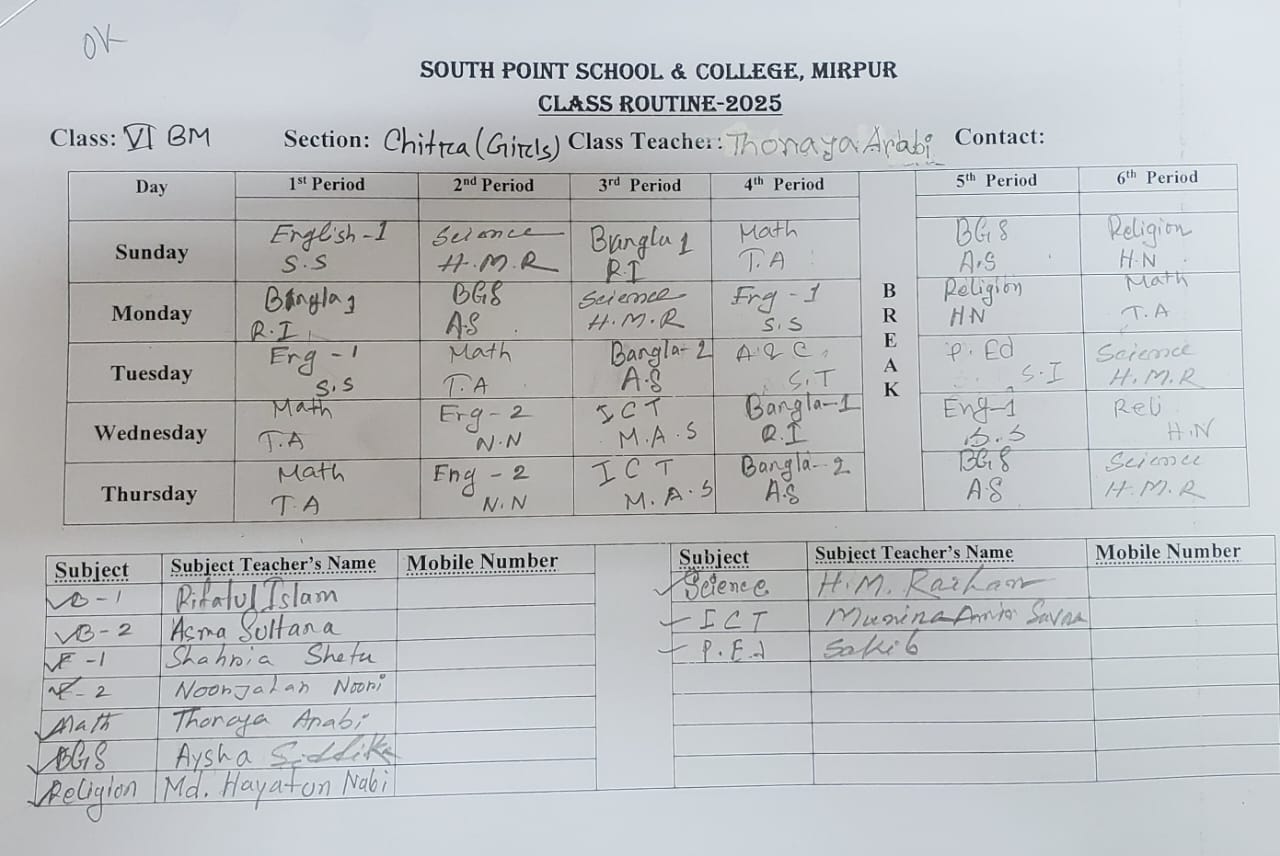 OK
SOUTH POINT SCHOOL & COLLEGE, MIRPUR
CLASS ROUTINE-2025
Class: VI BM Section: Chitra (Girls) Class Teacher: Thoraya Arabi Contact:
Day 1st Period 2nd Period 3rd Period 4th Period BREAK 5th Period 6th Period
Sunday English-1 Science Bangla 1 Math BGS Religion
S.S H.M.R R.I T.A A.S H.N
Monday Bangla 1 BGS Science Eng-1 Religion Math
R.I A.S H.M.R S.S HN T.A
Tuesday Eng-1 Math Bangla-2 A&C P.Ed Science
S.S T.A A.S S.T S.I H.M.R
Wednesday Math Eng-2 ICT Bangla-1 Eng-1 Reli
T.A N.N M.A.S R.I S.S H.N
Thursday Math Eng-2 ICT Bangla-2 BGS Science
T.A N.N M.A.S A.S A.S H.M.R
Subject Subject Teacher's Name Mobile Number Subject Subject Teacher's Name Mobile Number
B-1 Rifatul Islam Science H.M. Raihan
B-2 Asma Sultana ICT Munira
E-1 Shahria Shetu P.Ed Sakib
E-2 Noorjahan Noori
Math Thoraya Arabi
BGS Aysha Siddika
Religion Md. Hayatun Nabi